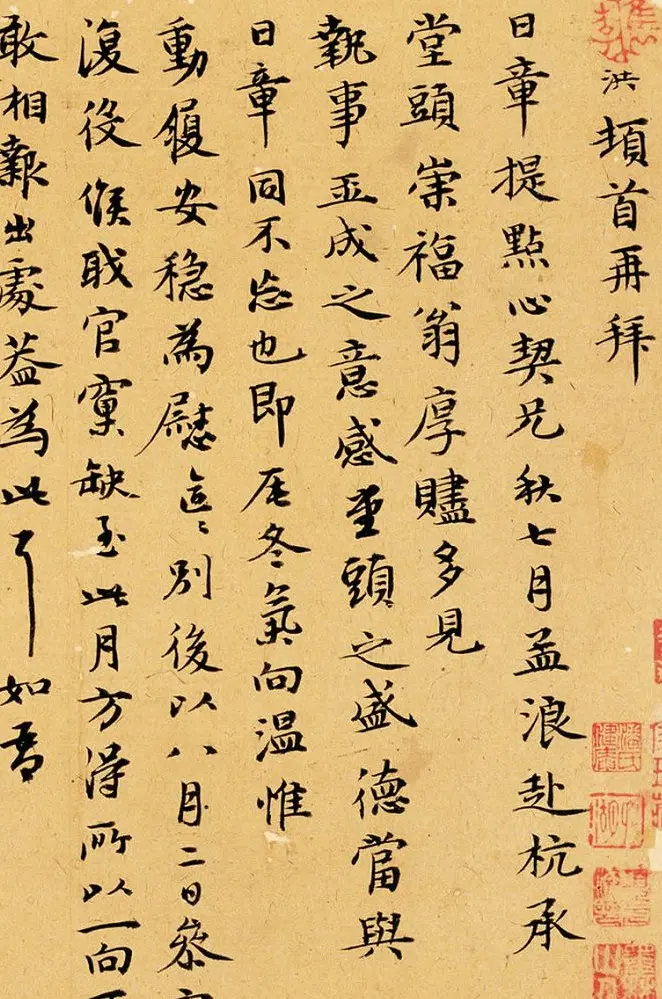 洪頓首再拜
日章提點心契兄秋七月孟浪赴杭承
堂頭崇福翁厚贐多見
執事玉成之意感堂頭之盛德當與
日章同不忘也即辰冬氣向溫惟
動履安穩為慰區區別後以八月二日參
復役候職官窠缺至此月方得所以一向
敢相報出處蓋為此耳如